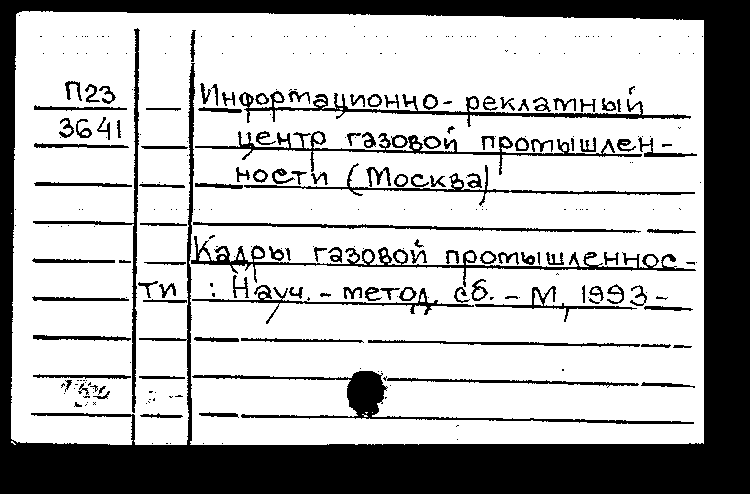 П23 Информационно-рекламный
3641 центр газовой промышлен-
ности (Москва)
Кадры газовой промышленнос-
ти : Науч.-метод. сб. - М., 1993-